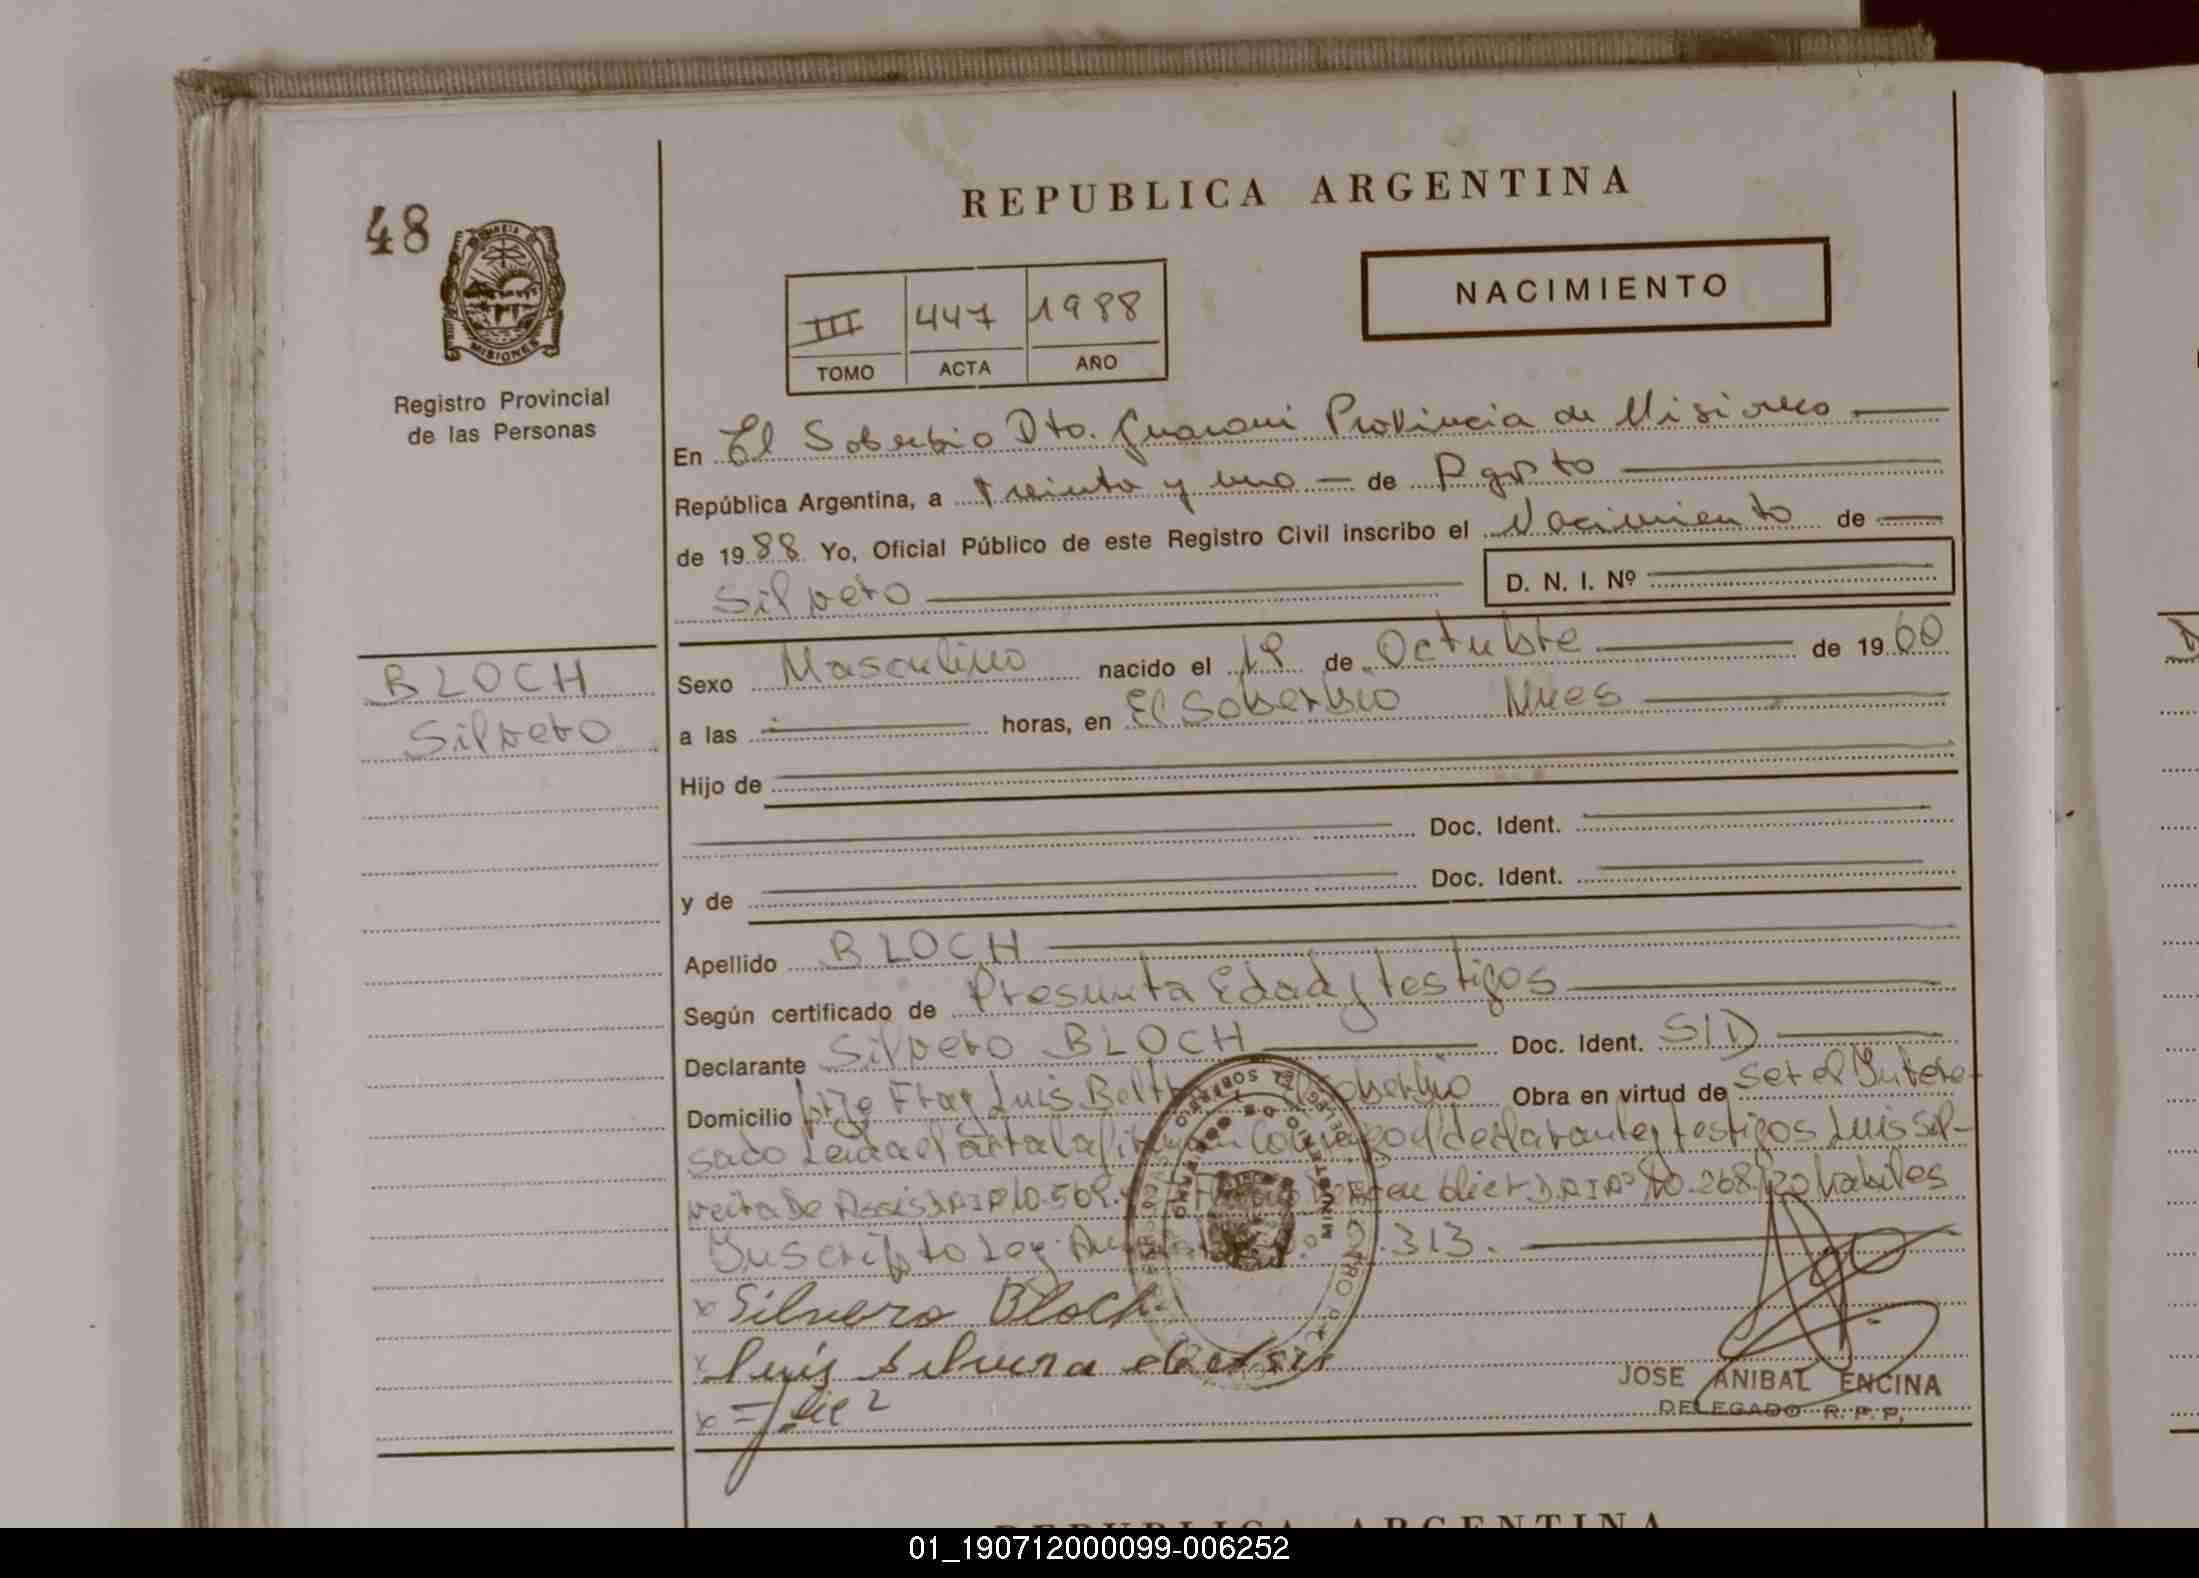 48
MISIONES
Registro Provincial
de las Personas
REPUBLICA ARGENTINA
NACIMIENTO
III 447 1988
TOMO ACTA AÑO
En El Soberbio Dto. Guarani Provincia de Misiones
República Argentina, a treinta y uno de Agosto
de 1988 Yo, Oficial Público de este Registro Civil inscribo el Nacimiento de
Silvero D. N. I. Nº
BLOCH
Silvero
Sexo Masculino nacido el de Octubre de 1960
a las horas, en El Soberbio Mnes
Hijo de
Doc. Ident.
y de Doc. Ident.
Apellido BLOCH
Según certificado de Presunta Edad y testigos
Declarante Silvero BLOCH Doc. Ident. S/D
Domicilio Fray Luis Belt Soberbio Obra en virtud de ser el Intere-
sado Leida el acta la declarante y testigos Luis Sil-
veira De Assis 10.268.120 habiles
Suscripto Ley 2.313.
x Silvero Bloch
x Luis Silveira
x
JOSE ANIBAL ENCINA
DELEGADO R. P. P.
REPUBLICA ARGENTINA
01_190712000099-006252